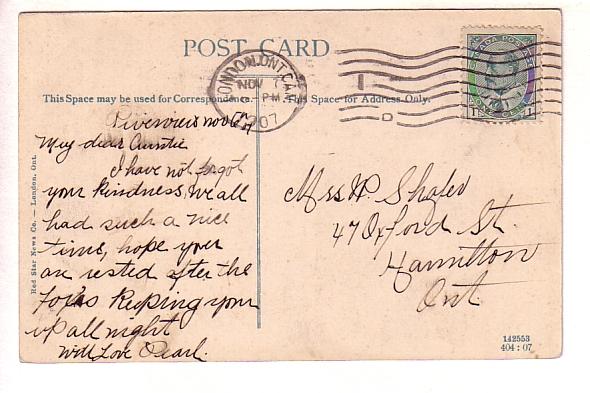 POST CARD
This Space may be used for Correspondence.
This Space for Address Only.
LONDON, ONT. CAN.
NOV 7
PM
07
CANADA POSTAGE
1
D
Riverview Nov 6th
My dear Auntie
I have not forgot
your kindness. We all
had such a nice
time, hope you
are rested after the
keeping you
up all night
With Love Pearl.
Mrs W. Shafer
47 Oxford St.
Hamilton
Ont.
Red Star News Co. — London, Ont.
142553
404 : 07